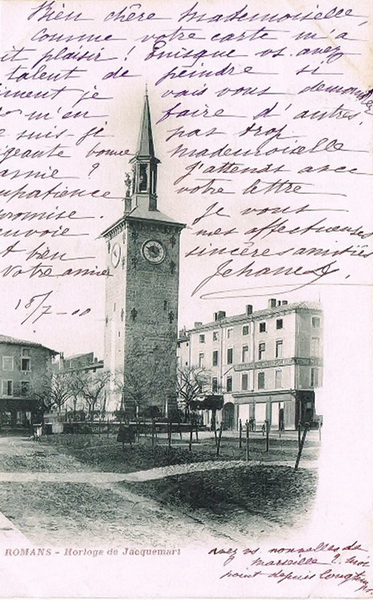 Bien chère Mademoiselle,
Comme votre carte m'a
it plaisir! Puisque vs. avez
talent de peindre si
iment je vais vous demander
m'en faire d'autres,
e suis-je pas trop
igeante bonne Mademoiselle
amie? J'attends avec
patience votre lettre
romise. Je vous
envoie mes affectueuses
et bien sincères amitiés
votre amie Jehanne
18/7-00
ROMANS - Horloge de Jacquemart
avez vs nouvelles de
Marseille? moi
point depuis longtemps